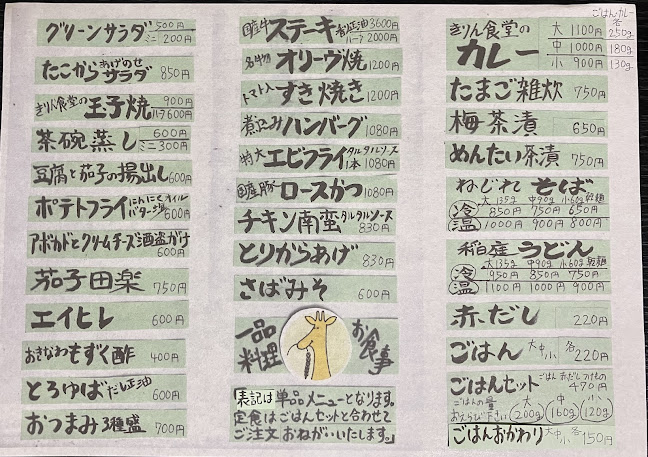 グリーンサラダ 500円 ミニ200円
たこからあげのせサラダ 850円
きりん食堂の玉子焼 900円 ハーフ600円
茶碗蒸し 600円 ミニ300円
豆腐と茄子の揚出し 600円
ポテトフライ にんにくオイル バター塩 600円
アボカドとクリームチーズ酒盗がけ 600円
茄子田楽 750円
エイヒレ 600円
おきなわもずく酢 400円
とろゆば だし正油 600円
おつまみ3種盛 700円
国産牛ステーキ 香り正油 3600円 ハーフ 2000円
名物 オリーヴ焼 1200円
トマト入 すき焼き 1200円
煮込みハンバーグ 1080円
特大エビフライ タルタルソース 1本 1080円
国産豚ロースかつ 1080円
チキン南蛮 タルタルソース 830円
とりからあげ 830円
さばみそ 600円
一品料理
お食事
「表記は単品メニューとなります。
定食はごはんセットと合わせて
ご注文おねがいいたします。」
ごはんカレー各
きりん食堂のカレー 大 1100円 250g
中 1000円 180g
小 900円 130g
たまご雑炊 750円
梅茶漬 650円
めんたい茶漬 750円
ねじれそば
大135g 中90g 小60g 乾麺
冷 850円 750円 650円
温 1000円 900円 800円
稲庭うどん
大135g 中90g 小60g 乾麺
冷 950円 850円 750円
温 1100円 1000円 900円
赤だし 220円
ごはん 大中小 各220円
ごはんセット ごはん 赤だし つけもの 470円
ごはんの量 おえらび下さい 大200g 中160g 小120g
ごはんおかわり 大中小 各150円